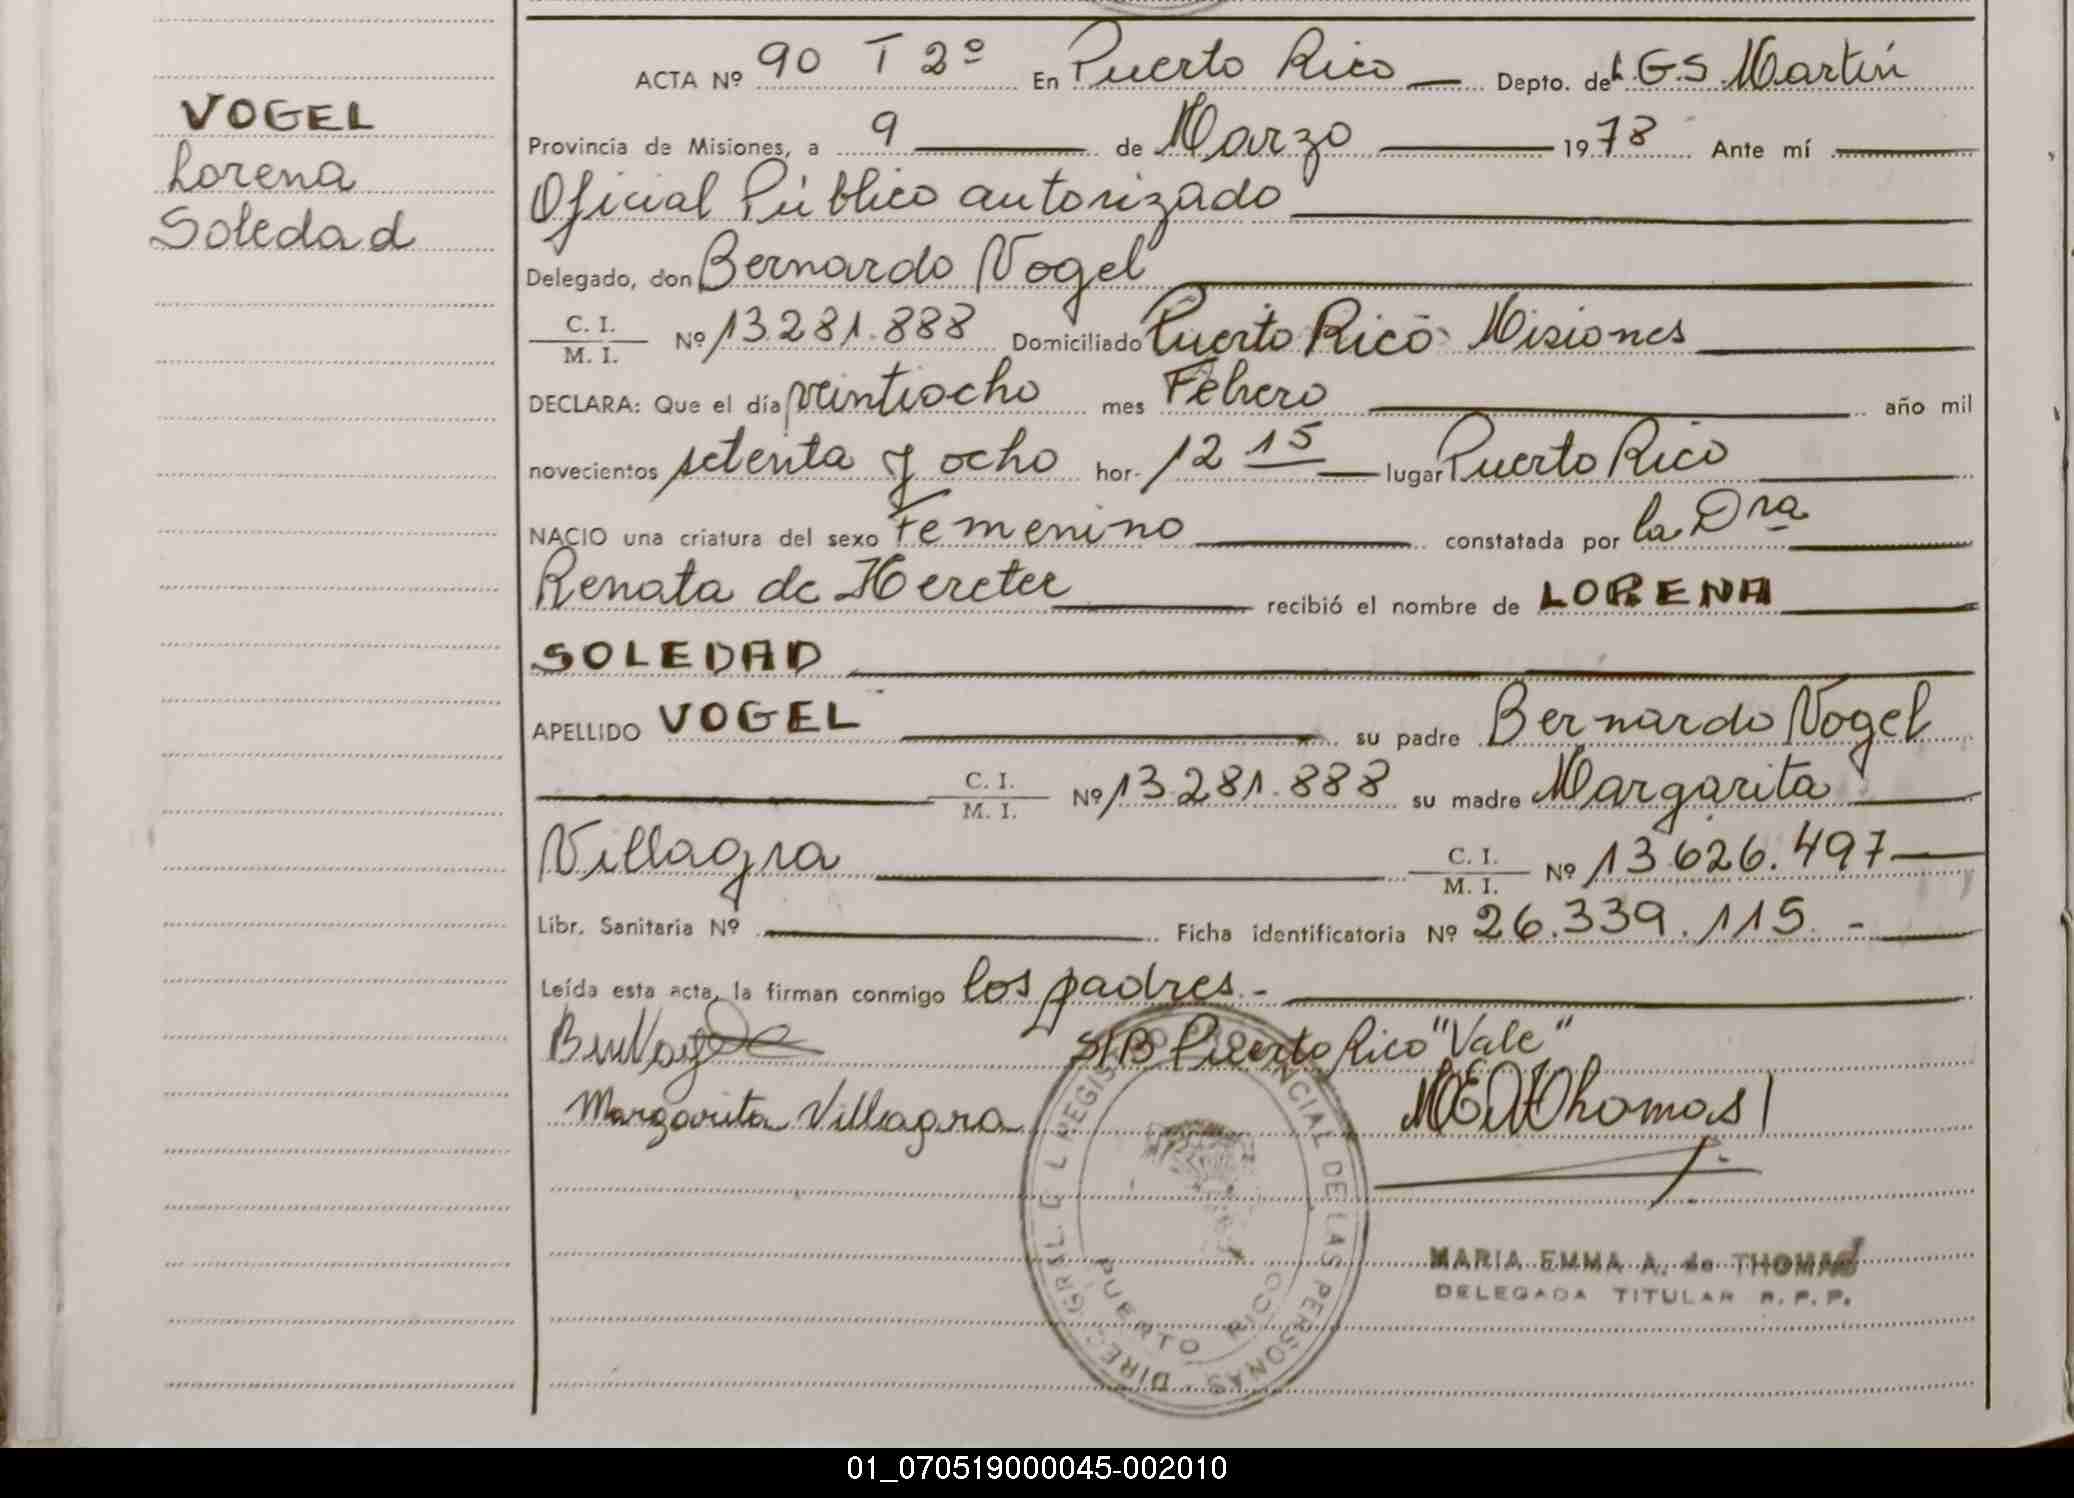 VOGEL
Lorena
Soledad
ACTA Nº 90 T 2º En Puerto Rico Depto. del L.G.S. Martín
Provincia de Misiones, a 9 de Marzo 1978 Ante mí
Oficial Público autorizado
Delegado, don Bernardo Vogel
C. I.
M. I. Nº 13.281.888 Domiciliado Puerto Rico Misiones
DECLARA: Que el día veintiocho mes Febrero año mil
novecientos setenta y ocho hor- 12 15 lugar Puerto Rico
NACIO una criatura del sexo Femenino constatada por la Dra
Renata de Hereter recibió el nombre de LORENA
SOLEDAD
APELLIDO VOGEL su padre Bernardo Vogel
C. I.
M. I. Nº 13.281.888 su madre Margarita
Villagra C. I.
M. I. Nº 13.626.497
Libr. Sanitaria Nº Ficha identificatoria Nº 26.339.115.-
Leída esta acta, la firman conmigo los padres.-
S/B Puerto Rico "Vale"
Margarita Villagra Thomas
REGISTRO PROVINCIAL DE LAS PERSONAS - DIREC. GRAL. DEL
PUERTO RICO
MARIA EMMA A. de THOMAS
DELEGADA TITULAR R. P. P.
01_070519000045-002010